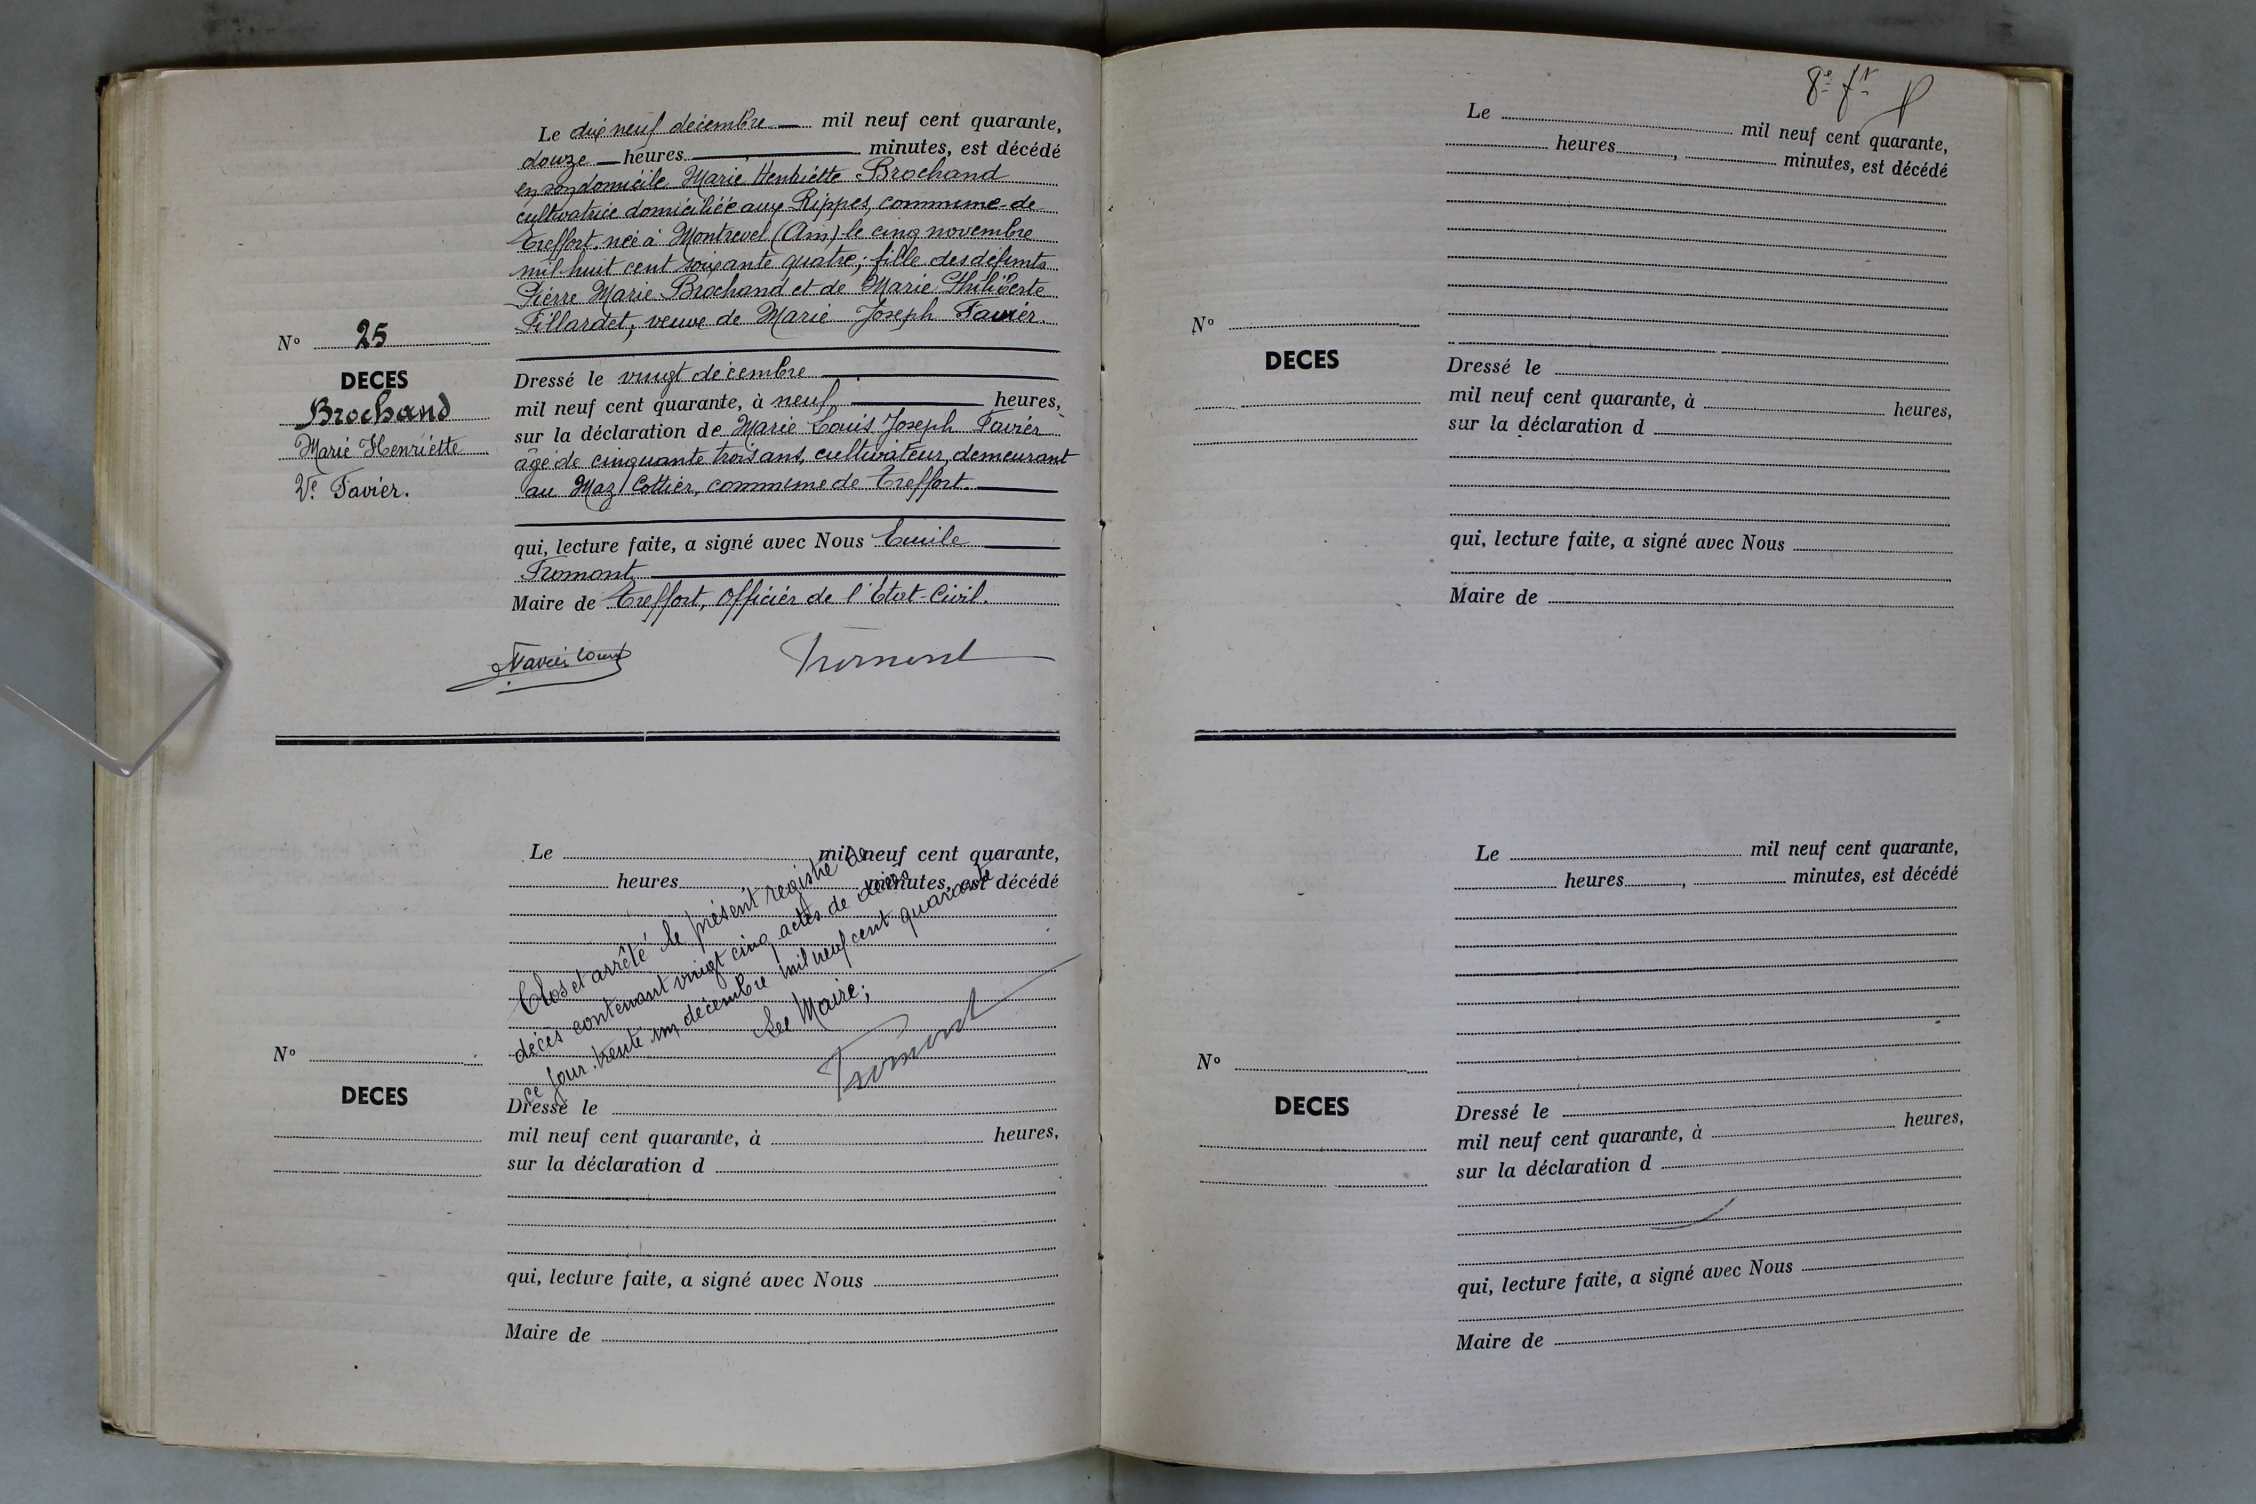 Le dix neuf décembre mil neuf cent quarante,
douze heures minutes, est décédé
en son domicile Marie Henriette Brochand
cultivatrice domiciliée aux Rippes, commune de
Treffort, née à Montrevel (Ain) le cinq novembre
mil huit cent soixante quatre; fille des défunts
Pierre Marie Brochand et de Marie Philiberte
Fillardet, veuve de Marie Joseph Favier.
N° 25
DECES
Brochand
Marie Henriette
Ve Favier.
Dressé le vingt décembre
mil neuf cent quarante, à neuf heures,
sur la déclaration de Marie Louis Joseph Favier
âgé de cinquante trois ans, cultivateur, demeurant
au Maz Cottier, commune de Treffort.
qui, lecture faite, a signé avec Nous Emile
Fromont
Maire de Treffort, Officier de l'Etat-Civil.
Favier Louis Fromont
Le mil neuf cent quarante,
heures minutes, est décédé
Clos et arrêté le présent registre de
décès contenant vingt cinq actes de décès
ce jour trente un décembre mil neuf cent quarante
Le Maire;
Fromont
N°
DECES
Dressé le
mil neuf cent quarante, à heures,
sur la déclaration d
qui, lecture faite, a signé avec Nous
Maire de
8e
Le mil neuf cent quarante,
heures , minutes, est décédé
N°
DECES
Dressé le
mil neuf cent quarante, à heures,
sur la déclaration d
qui, lecture faite, a signé avec Nous
Maire de
Le mil neuf cent quarante,
heures , minutes, est décédé
N°
DECES
Dressé le
mil neuf cent quarante, à heures,
sur la déclaration d
qui, lecture faite, a signé avec Nous
Maire de